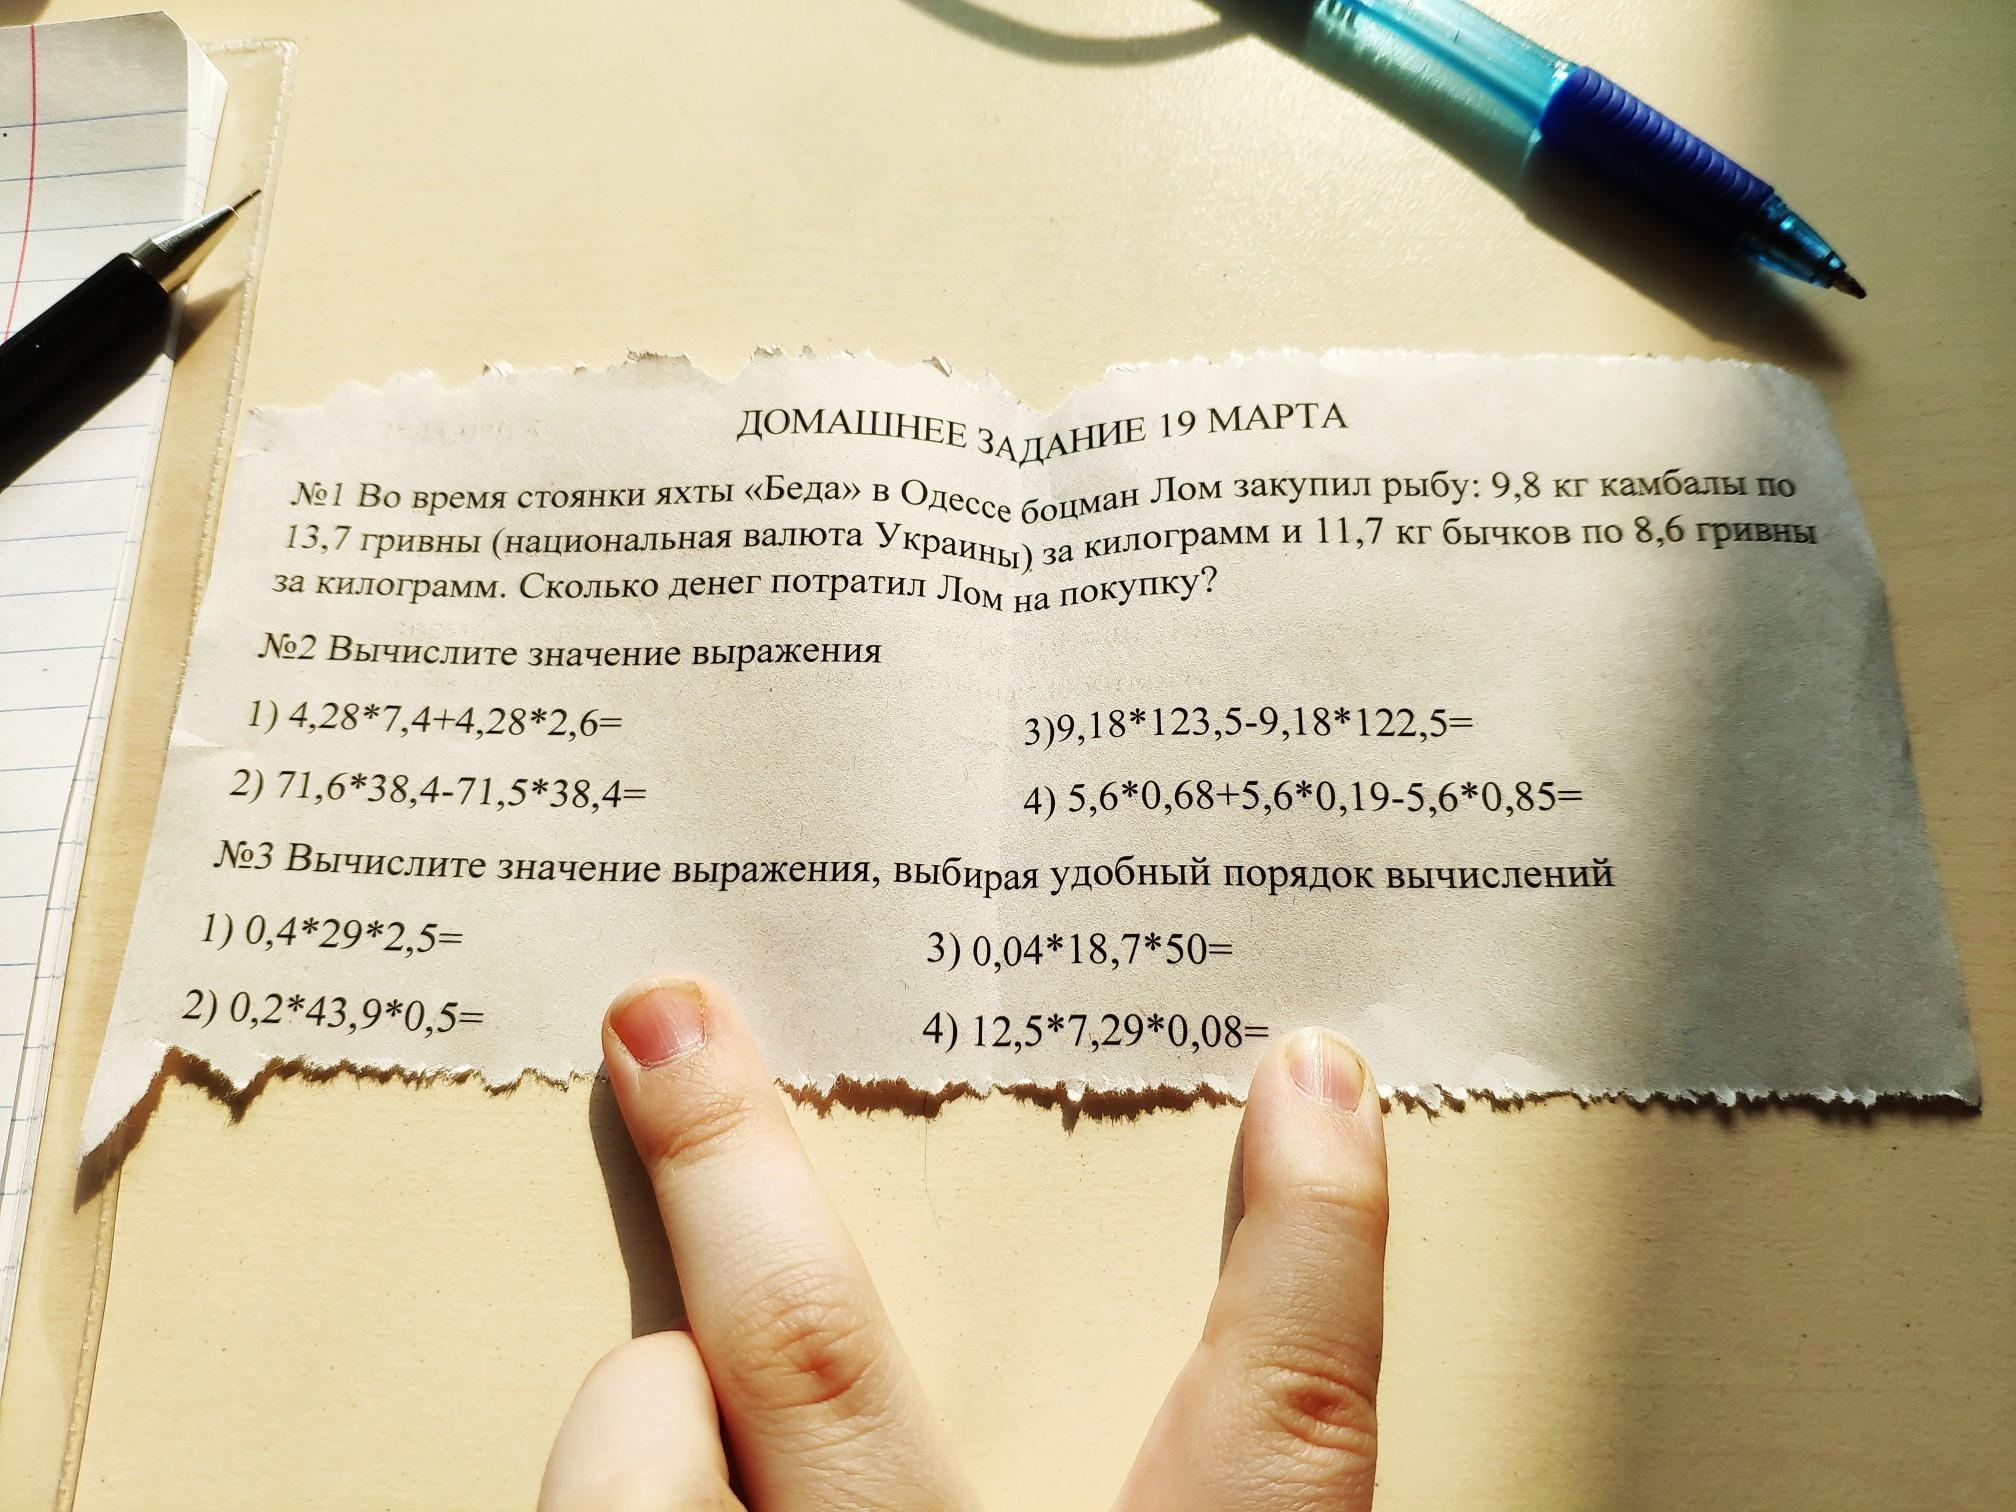 ДОМАШНЕЕ ЗАДАНИЕ 19 МАРТА
№1 Во время стоянки яхты «Беда» в Одессе боцман Лом закупил рыбу: 9,8 кг камбалы по
13,7 гривны (национальная валюта Украины) за килограмм и 11,7 кг бычков по 8,6 гривны
за килограмм. Сколько денег потратил Лом на покупку?
№2 Вычислите значение выражения
1) 4,28*7,4+4,28*2,6=
3)9,18*123,5-9,18*122,5=
2) 71,6*38,4-71,5*38,4=
4) 5,6*0,68+5,6*0,19-5,6*0,85=
№3 Вычислите значение выражения, выбирая удобный порядок вычислений
1) 0,4*29*2,5=
3) 0,04*18,7*50=
2) 0,2*43,9*0,5=
4) 12,5*7,29*0,08=